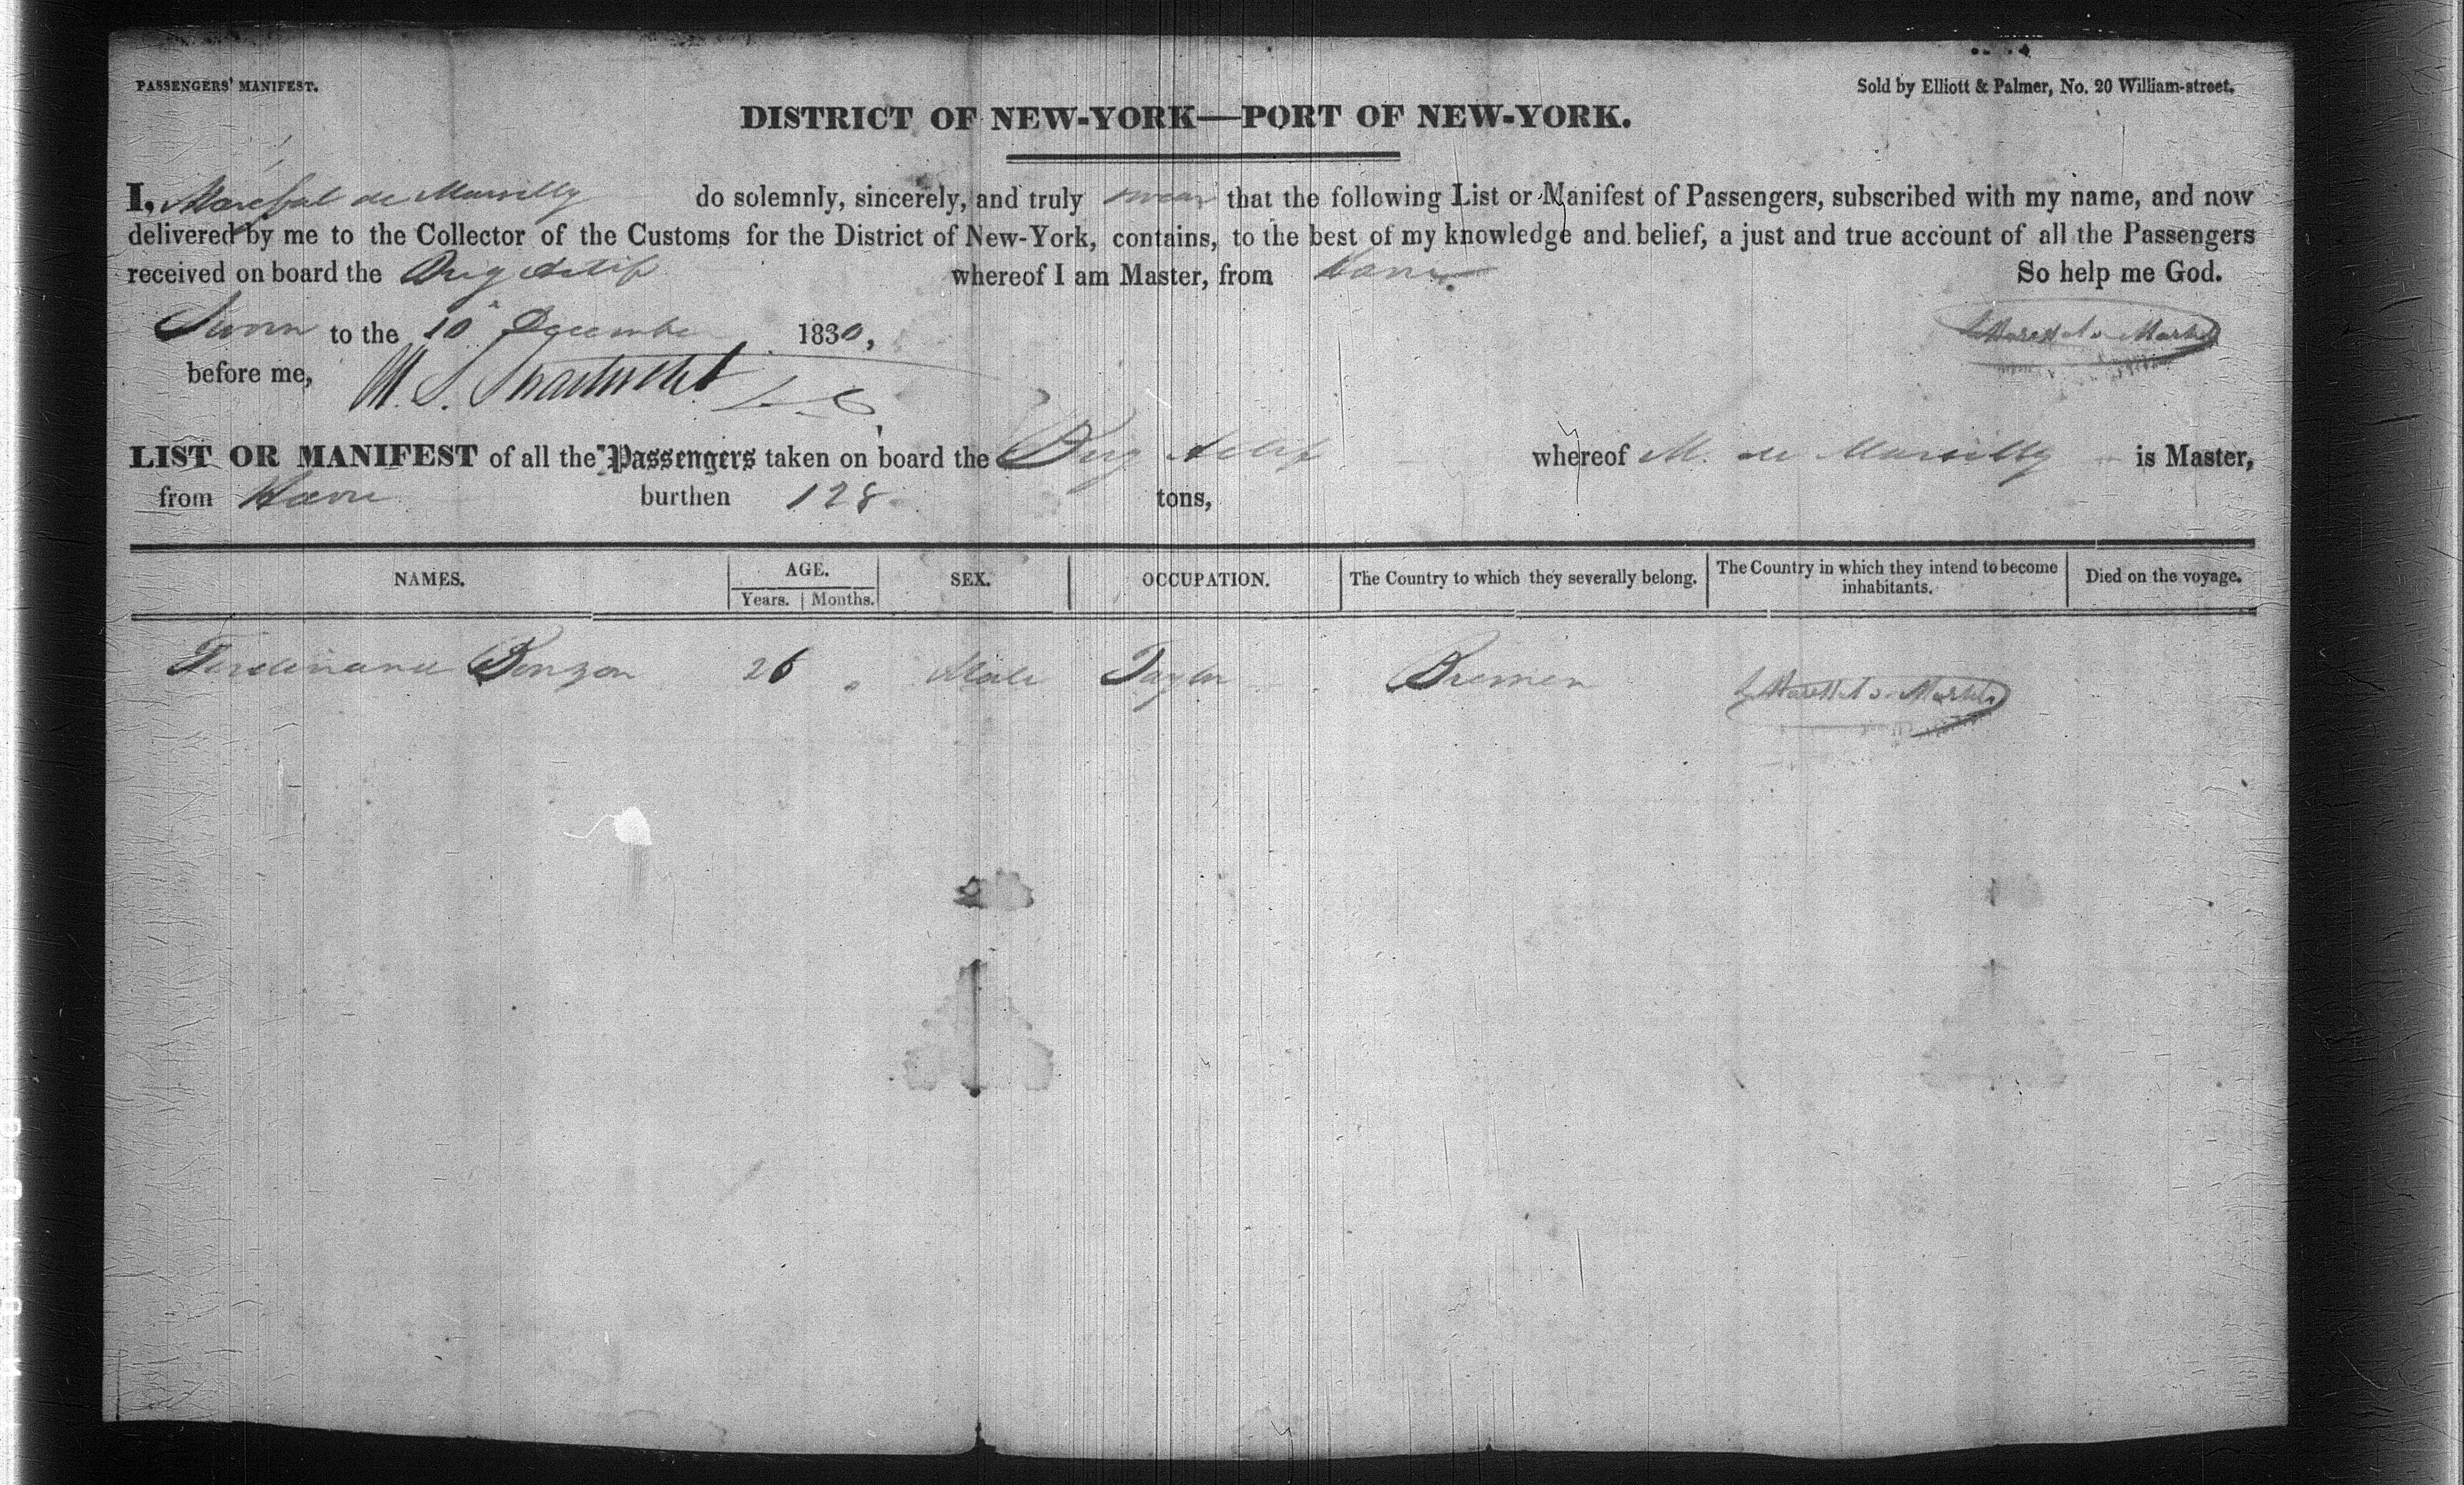 PASSENGERS' MANIFEST.
Sold by Elliott & Palmer, No. 20 William-street.
DISTRICT OF NEW-YORK—PORT OF NEW-YORK.
I, de do solemnly, sincerely, and truly swear that the following List or Manifest of Passengers, subscribed with my name, and now
delivered by me to the Collector of the Customs for the District of New-York, contains, to the best of my knowledge and belief, a just and true account of all the Passengers
received on board the Brig Actif whereof I am Master, from Havre So help me God.
Sworn to the 10 December 1830,
before me, M. S. Swartwout
LIST OR MANIFEST of all the Passengers taken on board the Brig Actif whereof M. de is Master,
from Havre burthen 128 tons,
NAMES. AGE. SEX. OCCUPATION. The Country to which they severally belong. The Country in which they intend to become inhabitants. Died on the voyage.
Years. Months.
Ferdinand 26 " Male Taylor Bremen